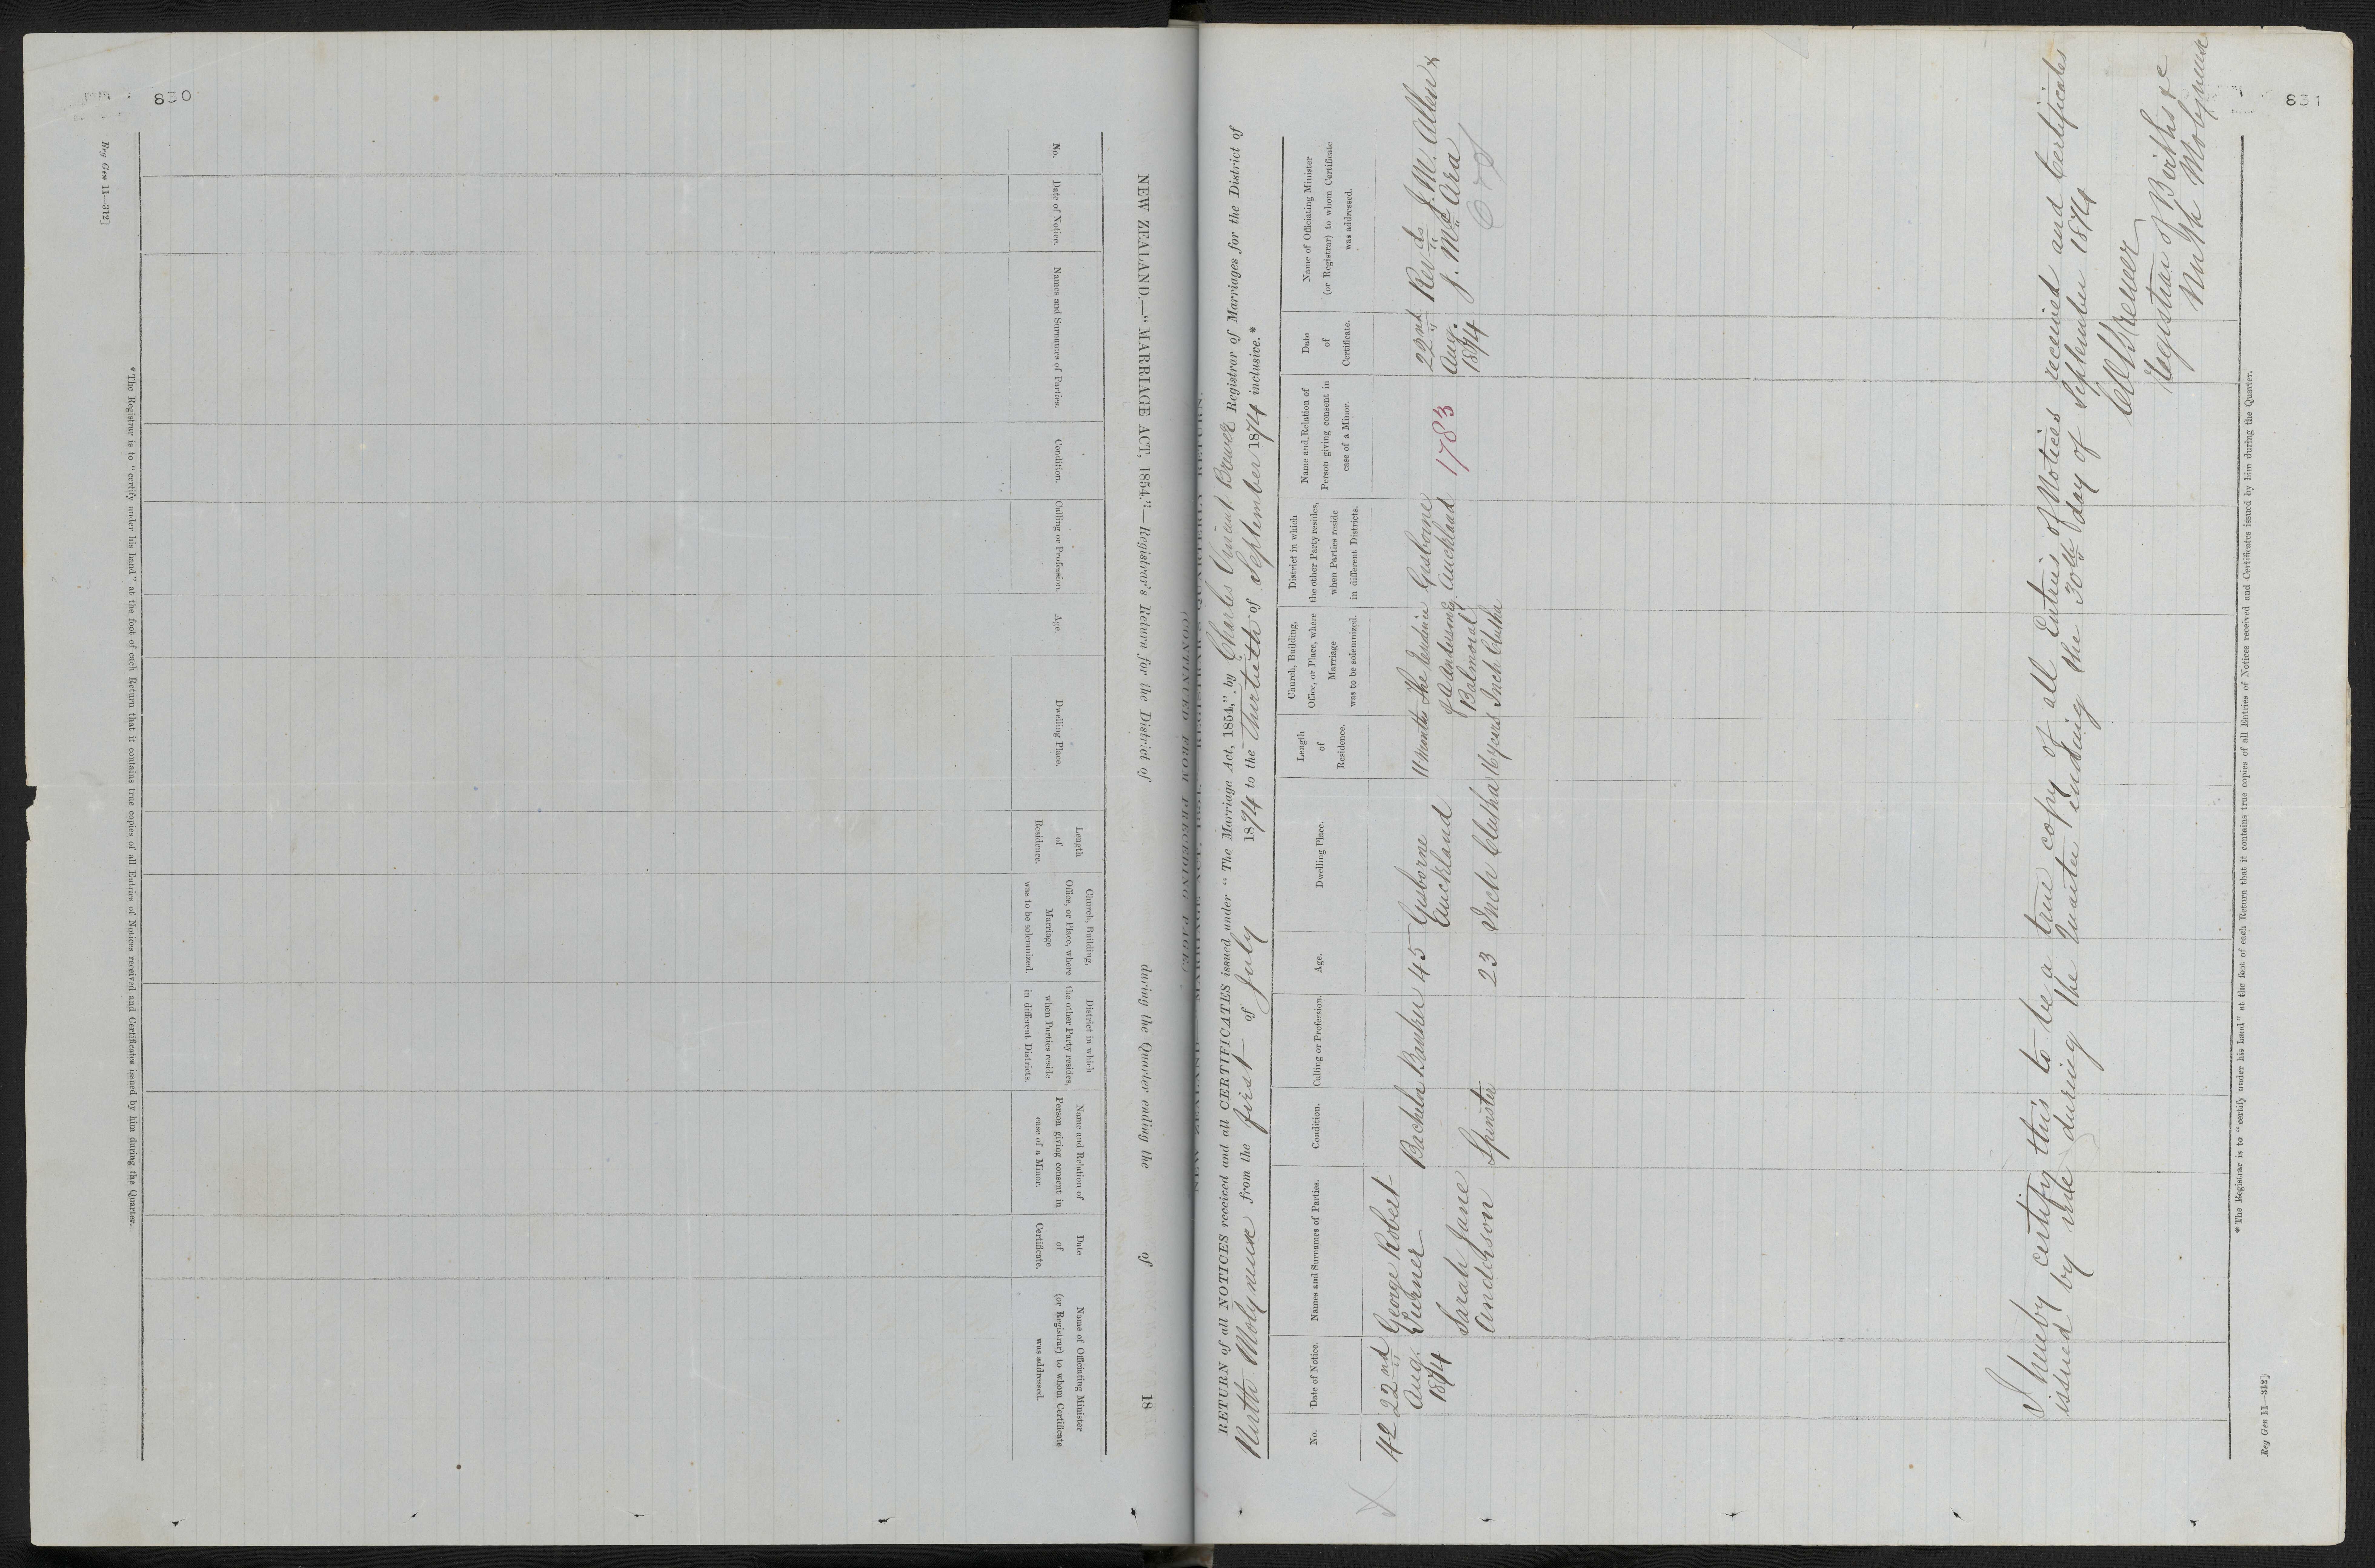 830
NEW ZEALAND.—“MARRIAGE ACT, 1854.”—Registrar's Return for the District of during the Quarter ending the of 18
No.
Date of Notice.
Names and Surnames of Parties.
Condition.
Calling or Profession.
Age.
Dwelling Place.
Length
of
Residence.
Church, Building,
Office, or Place, where
Marriage
was to be solemnized.
District in which
the other Party resides,
when Parties reside
in different Districts.
Name and Relation of
Person giving consent in
case of a Minor.
Date
of
Certificate.
Name of Officiating Minister
(or Registrar) to whom Certificate
was addressed.
* The Registrar is to “certify under his hand” at the foot of each Return that it contains true copies of all Entries of Notices received and Certificates issued by him during the Quarter.
Reg Gen 11—312]
831
RETURN of all NOTICES received and all CERTIFICATES issued under “The Marriage Act, 1854,” by Charles Vincent Brewer Registrar of Marriages for the District of
North Molyneux from the first of July 1874 to the Thirtieth of September 1874 inclusive.*
No.
Date of Notice.
Names and Surnames of Parties.
Condition.
Calling or Profession.
Age.
Dwelling Place.
Length
of
Residence.
Church, Building,
Office, or Place, where
Marriage
was to be solemnized.
District in which
the other Party resides,
when Parties reside
in different Districts.
Name and Relation of
Person giving consent in
case of a Minor.
Date
of
Certificate.
Name of Officiating Minister
(or Registrar) to whom Certificate
was addressed.
42
22nd
Aug.
1874
George Robert
Turner
Bachelor
Banker
45
Gisborne
Auckland
11 months
The residence
of J Anderson Esq
Balmoral
Inch Clutha
Gisborne
Auckland
1783
22nd
Aug.
1874
Revds J. M. Allan &
J. McAra
Sarah Jane
Anderson
Spinster
23
Inch Clutha
16 years
I hereby certify this to be a true copy of all Entries of Notices received and Certificates
issued by me during the Quarter ending the 30th day of September 1874
CVBrewer
Registrar of Births &c
North Molyneux
* The Registrar is to “certify under his hand” at the foot of each Return that it contains true copies of all Entries of Notices received and Certificates issued by him during the Quarter.
Reg Gen 11—312]